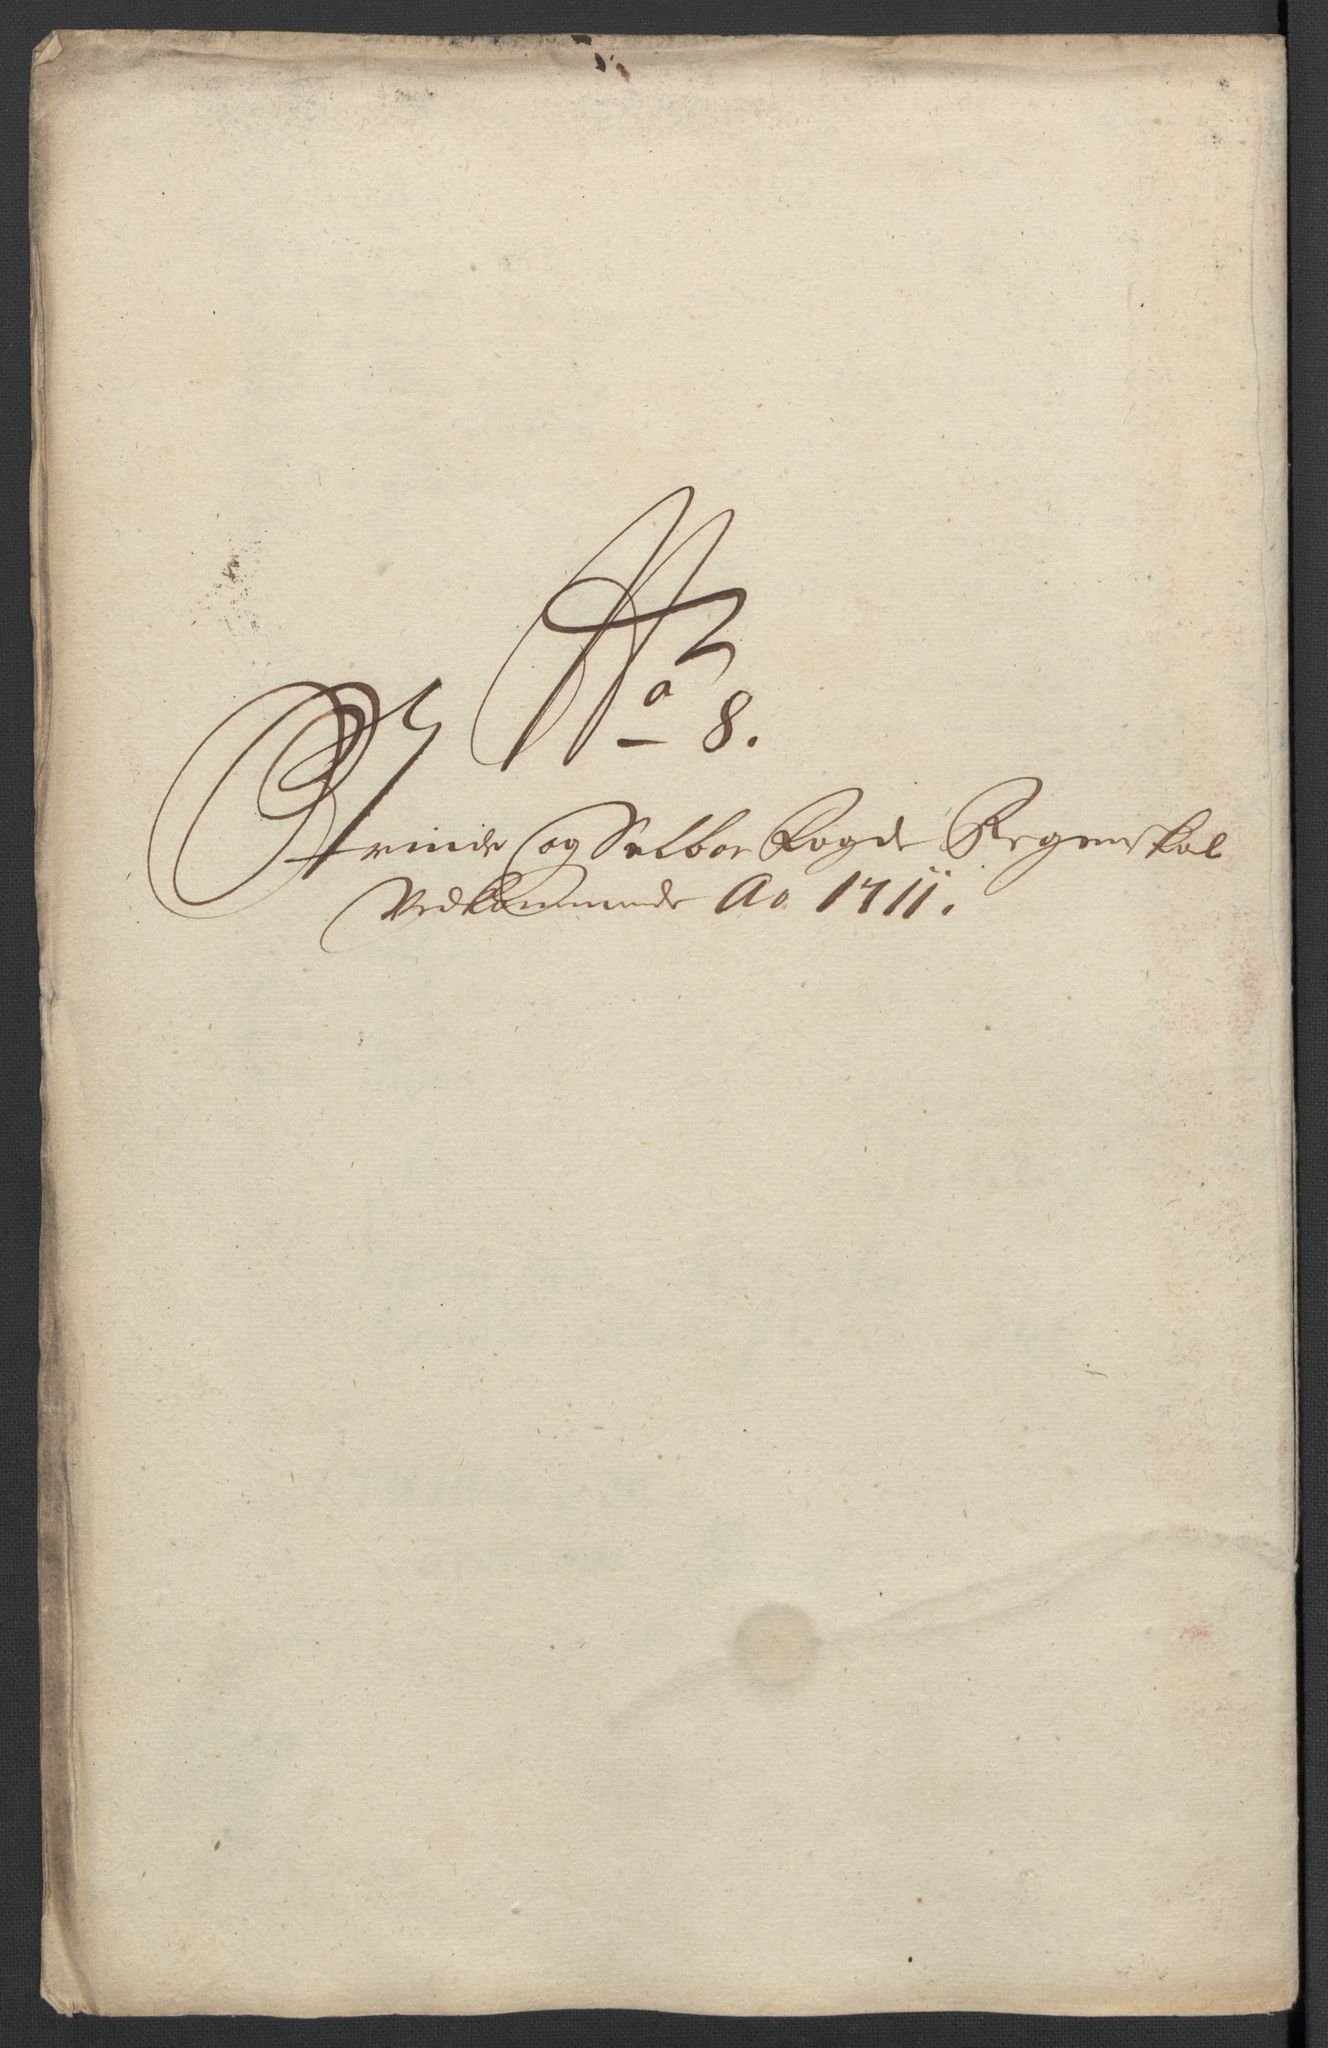 No 8.
Strinde og Selboe Fogde Regenskab
Vedkommende Ao 1711.